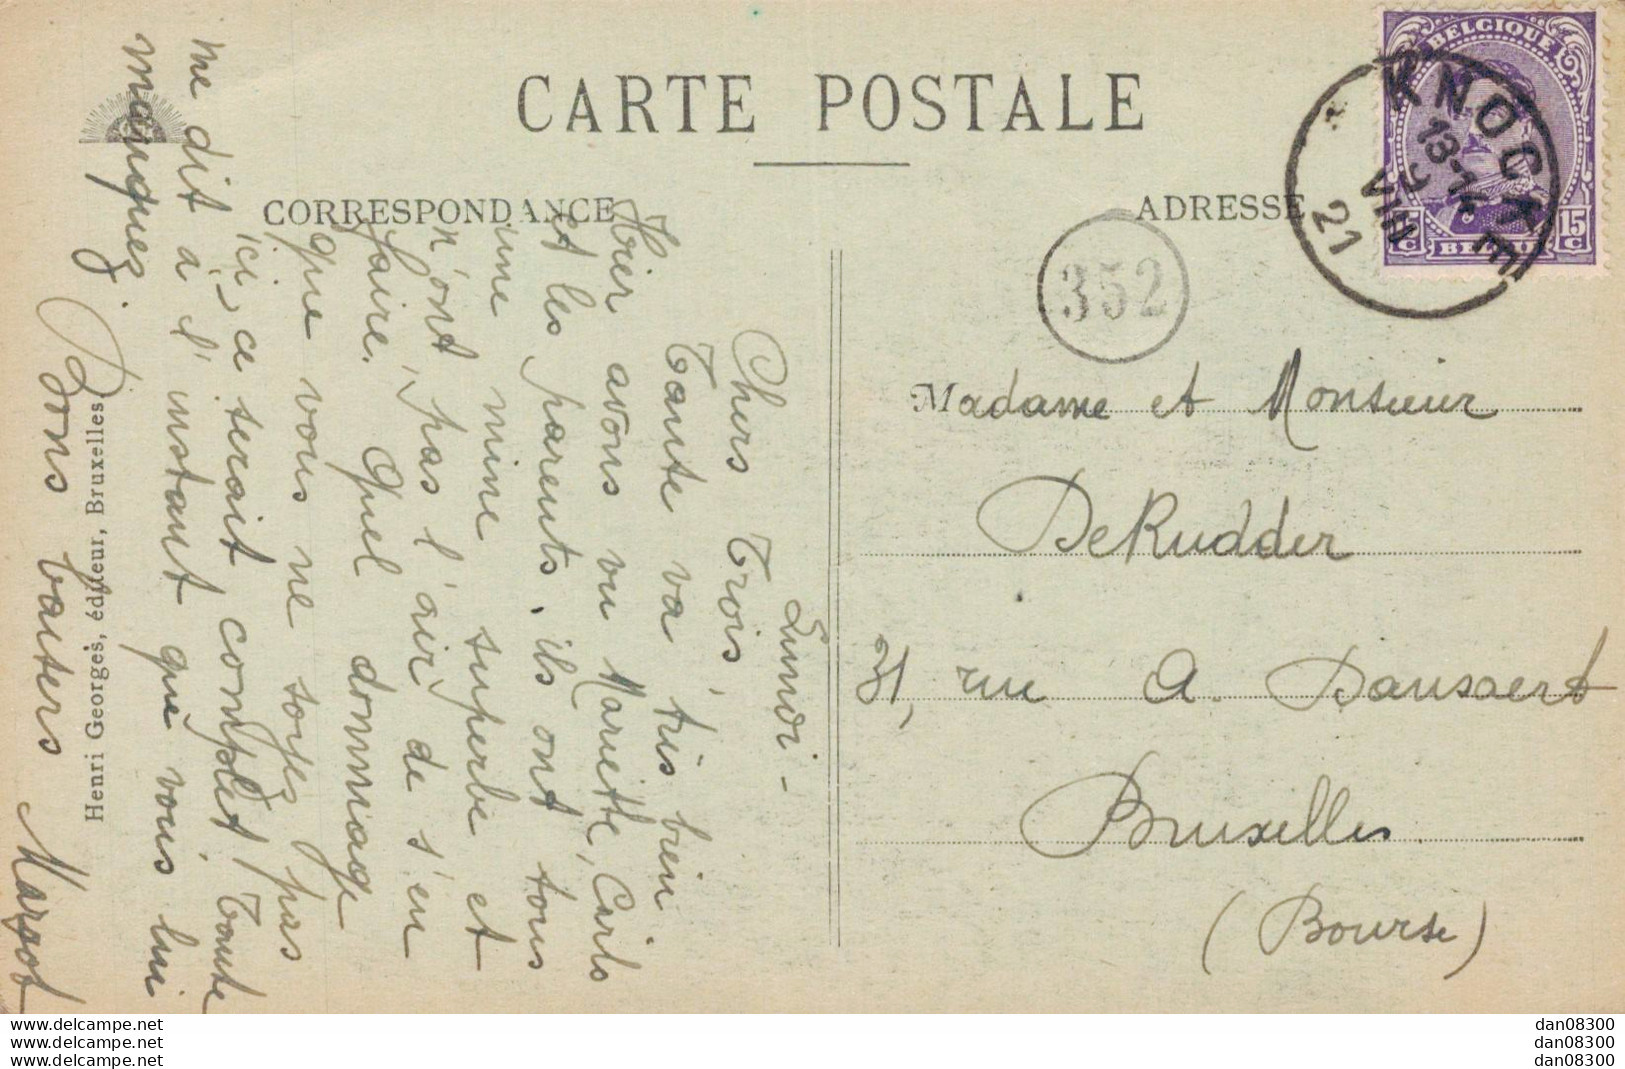 CARTE POSTALE
CORRESPONDANCE
ADRESSE
BELGIQUE
15 C
15 C
BELGIË
KNOCKE
VIII
21
352
Lundi -
Chers Trois
Tante va très bien
Hier avons vu Mariette, Carlo
et les parents. ils ont tous
une mine superbe et
n'ont pas l'air de s'en
faire. Quel dommage
que vous ne soyez pas
ici, ce serait complet! Tante
me dit à l'instant que vous lui
manquez.
Bons baisers
Margot
Madame et Monsieur
DeRudder
31, rue A. Dansaert
Bruxelles
(Bourse)
Henri Georges, éditeur, Bruxelles
www.delcampe.net
www.delcampe.net
www.delcampe.net
dan08300
dan08300
dan08300